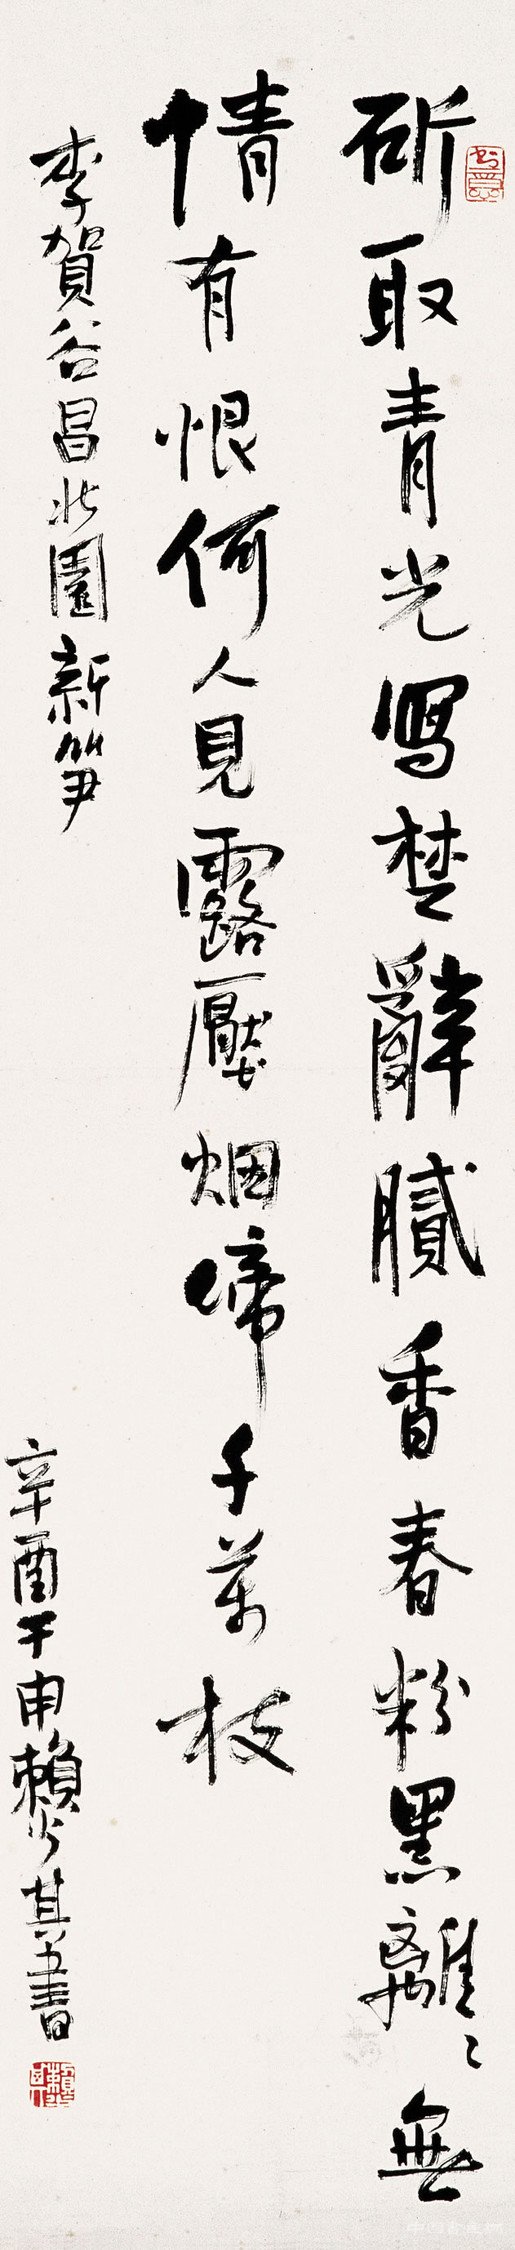 斫取青光寫楚辭膩香春粉黑離〻無
情有恨何人見露壓烟啼千萬枝
李賀谷昌北園新笋
辛酉申賴少其書